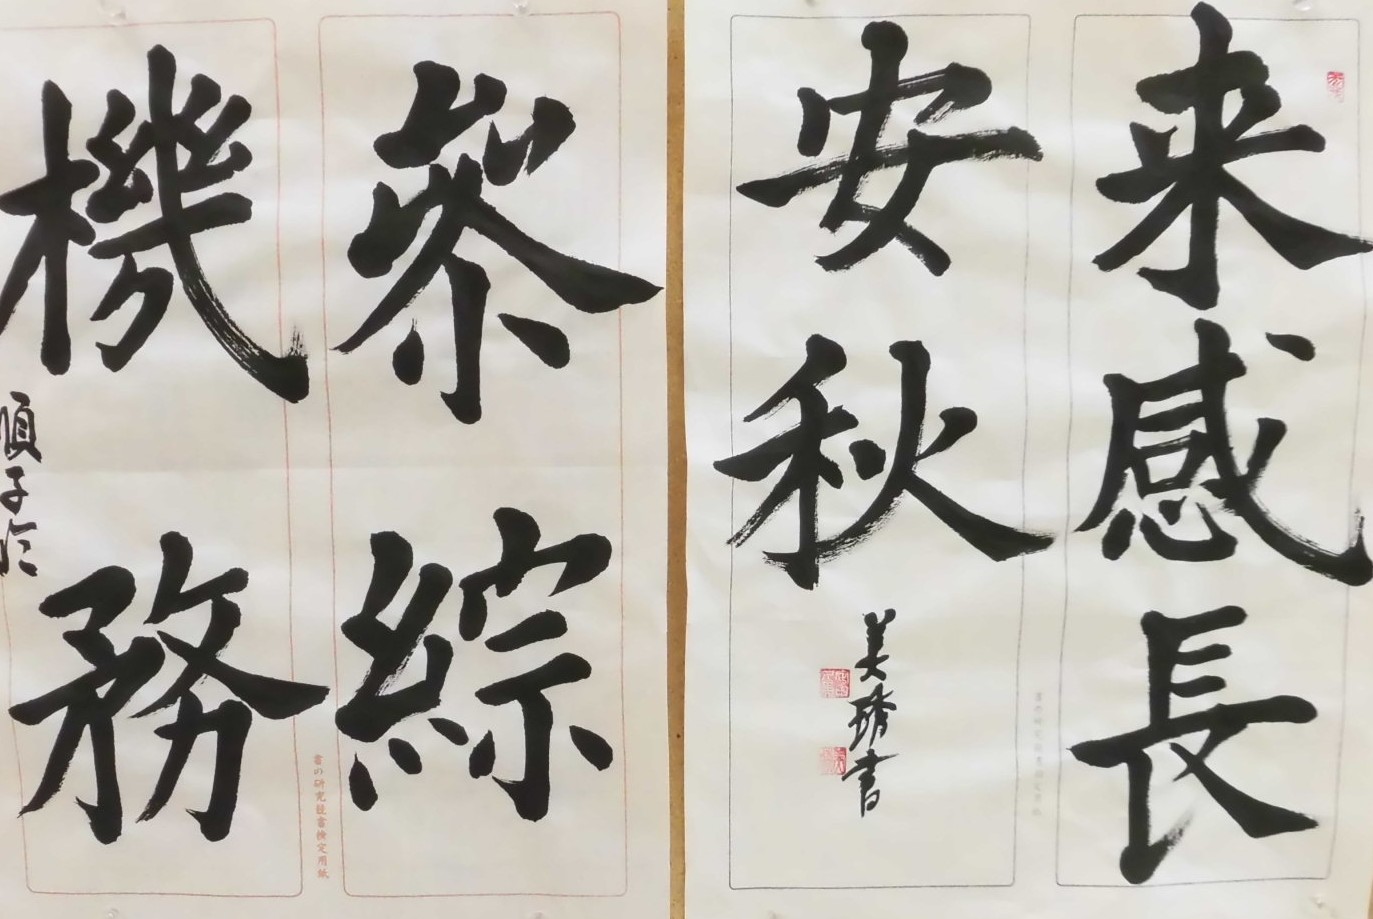 来感長
安秋
美琇書
參綜
機務
順子臨
書の研究書検定用紙